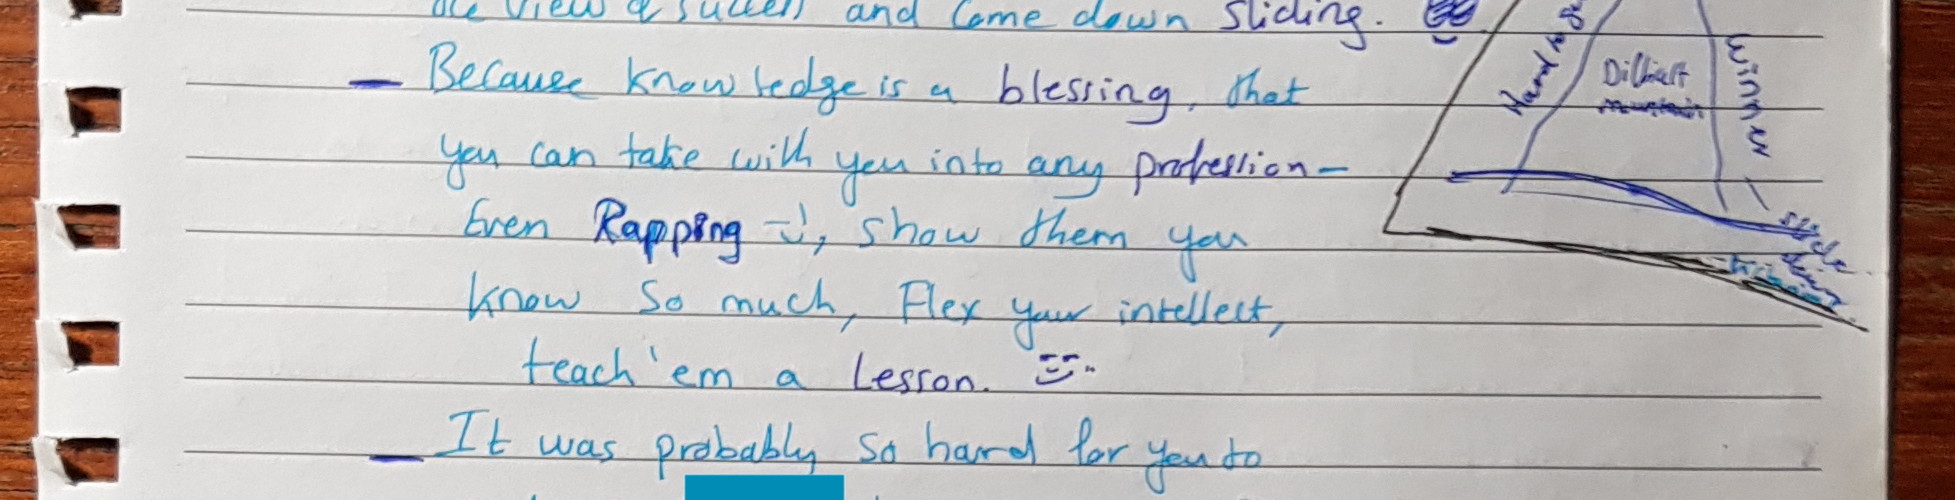 the view of success and come down sliding.
— Because knowledge is a blessing, that
you can take with you into any profession —
Even Rapping :), show them you
know so much, Flex your intellect,
teach 'em a lesson.
— It was probably so hard for you to
Hard to
Difficult
mountain
Winner
slide